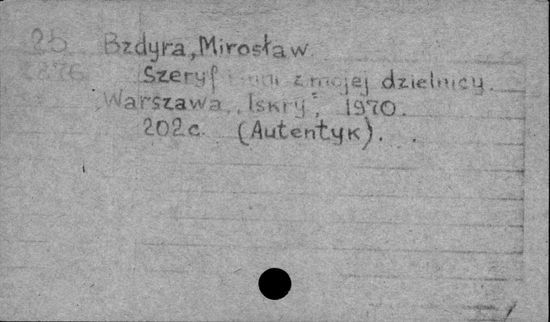 25 Bzdyra, Mirosław.
Szeryf z mojej dzielnicy.
Warszawa, „Iskry", 1970.
202c. (Autentyк).